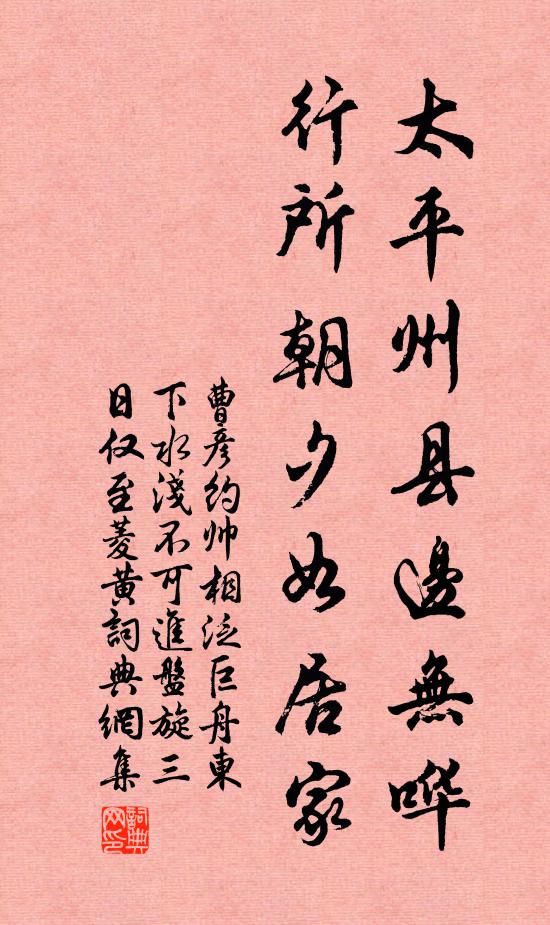 太平州县邊無哗
行所朝夕如居家
曹彦约帅相泛巨舟東
下水淺不可進盤旋三
日仅至菱黄詞典網集
詞典
网印